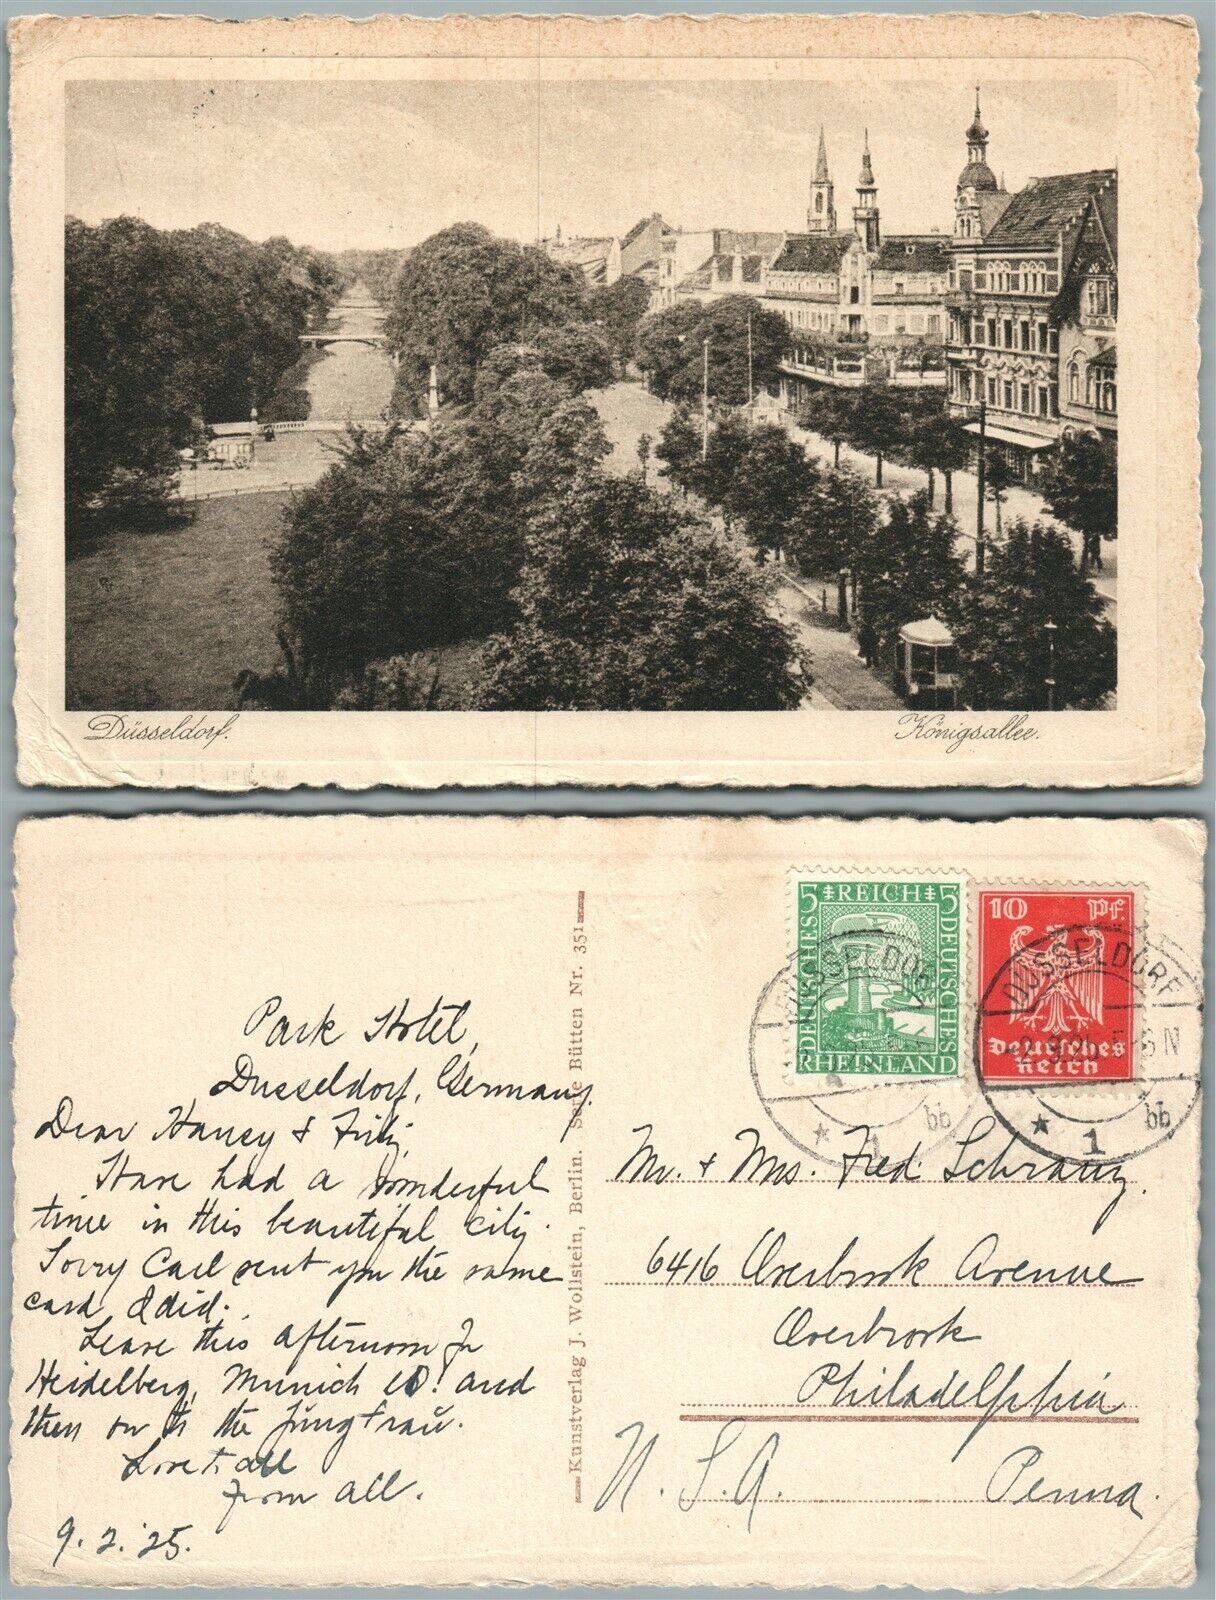 Düsseldorf.
Königsallee.
5 REICH 5
DEUTSCHES
DEUTSCHES
RHEINLAND
10 Pf.
Deutsches
Reich
DÜSSELDORF
DÜSSELDORF
-2.9.25. 5-6 N
* 1 bb
* 1 bb
Park Hotel,
Dusseldorf, Germany.
Dear Haney & Fritz,
Have had a wonderful
time in this beautiful city.
Sorry Carl sent you the same
card I did.
Leave this afternoon for
Heidelberg, Munich and
then on to the Jungfrau.
Love to all
from all.
9.2.'25.
Kunstverlag J. Wollstein, Berlin. Serie Bütten Nr. 351
Mr. + Mrs. Fred Schranz.
6416 Overbrook Avenue
Overbrook
Philadelphia
U.S.A. Penna.